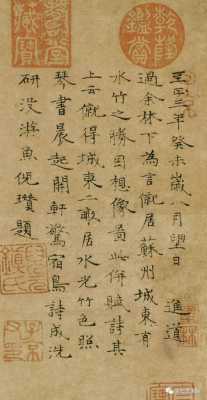 乾隆鑑賞
至正三年癸未歲八月望日 進道
過余林下為言僦居蘇州城東有
水竹之勝因想像圖此併賦詩其
上云僦得城東二畝居水光竹色照
琴書晨起開軒驚宿鳥詩成洗
研没游魚倪瓚題